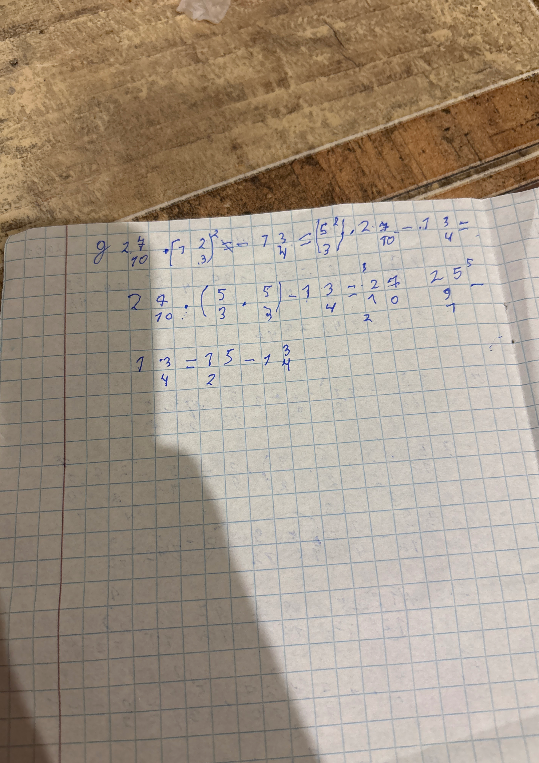 g 2 7/10 · (1 2/3)² - 1 3/4 = (5/3)² · 2 7/10 - 1 3/4 =
2 7/10 · (5/3 · 5/3) - 1 3/4 = 27/10 25/9 -
1 3/4 = 15/2 - 1 3/4